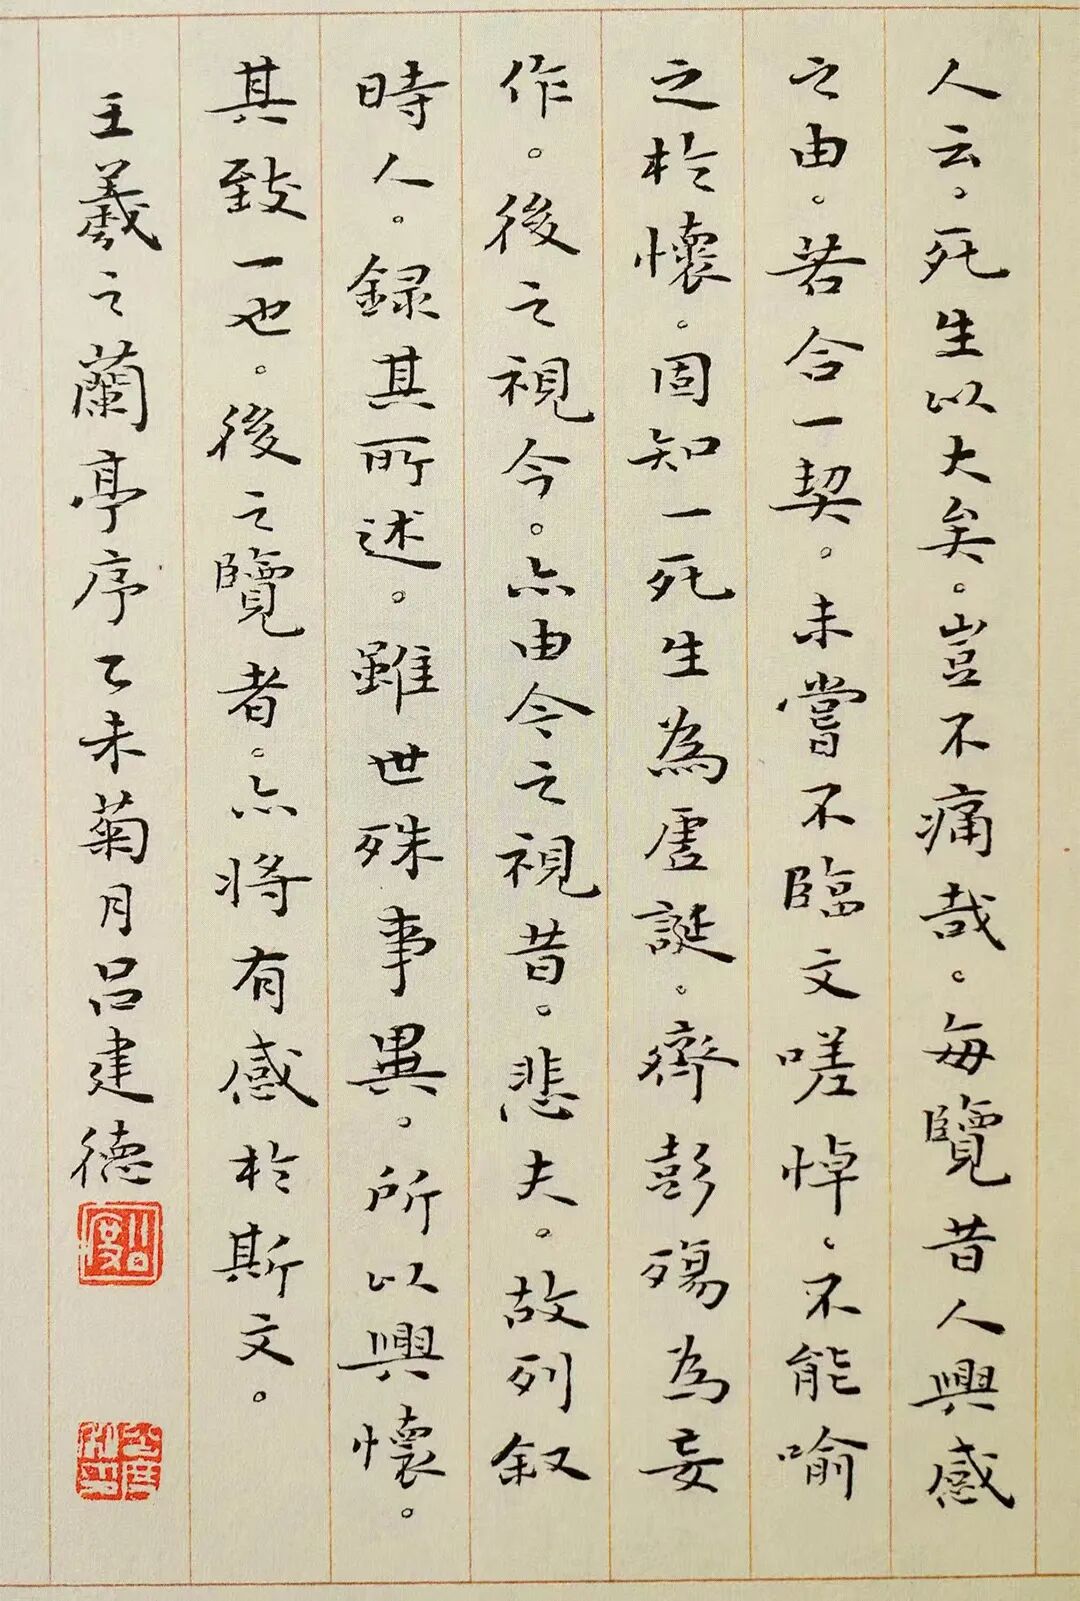 人云。死生以大矣。豈不痛哉。每覽昔人興感
之由。若合一契。未嘗不臨文嗟悼、不能喻
之於懷。固知一死生為虛誕。齊彭殤為妄
作。後之視今。亦由今之視昔。悲夫。故列叙
時人。録其所述。雖世殊事異。所以興懷。
其致一也。後之覽者。亦將有感於斯文。
王羲之蘭亭序乙未菊月呂建德